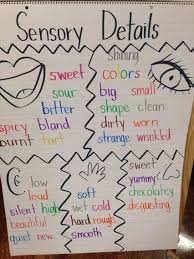 Sensory Details
sweet
sour
bitter
spicy bland
burnt tart
shining
colors
big small
shape clean
dirty worn
strange wrinkled
low
loud
silent high
beautiful
quiet new
soft
wet cold
hard rough
smooth
sweet
yummy
chocolatey
disgusting